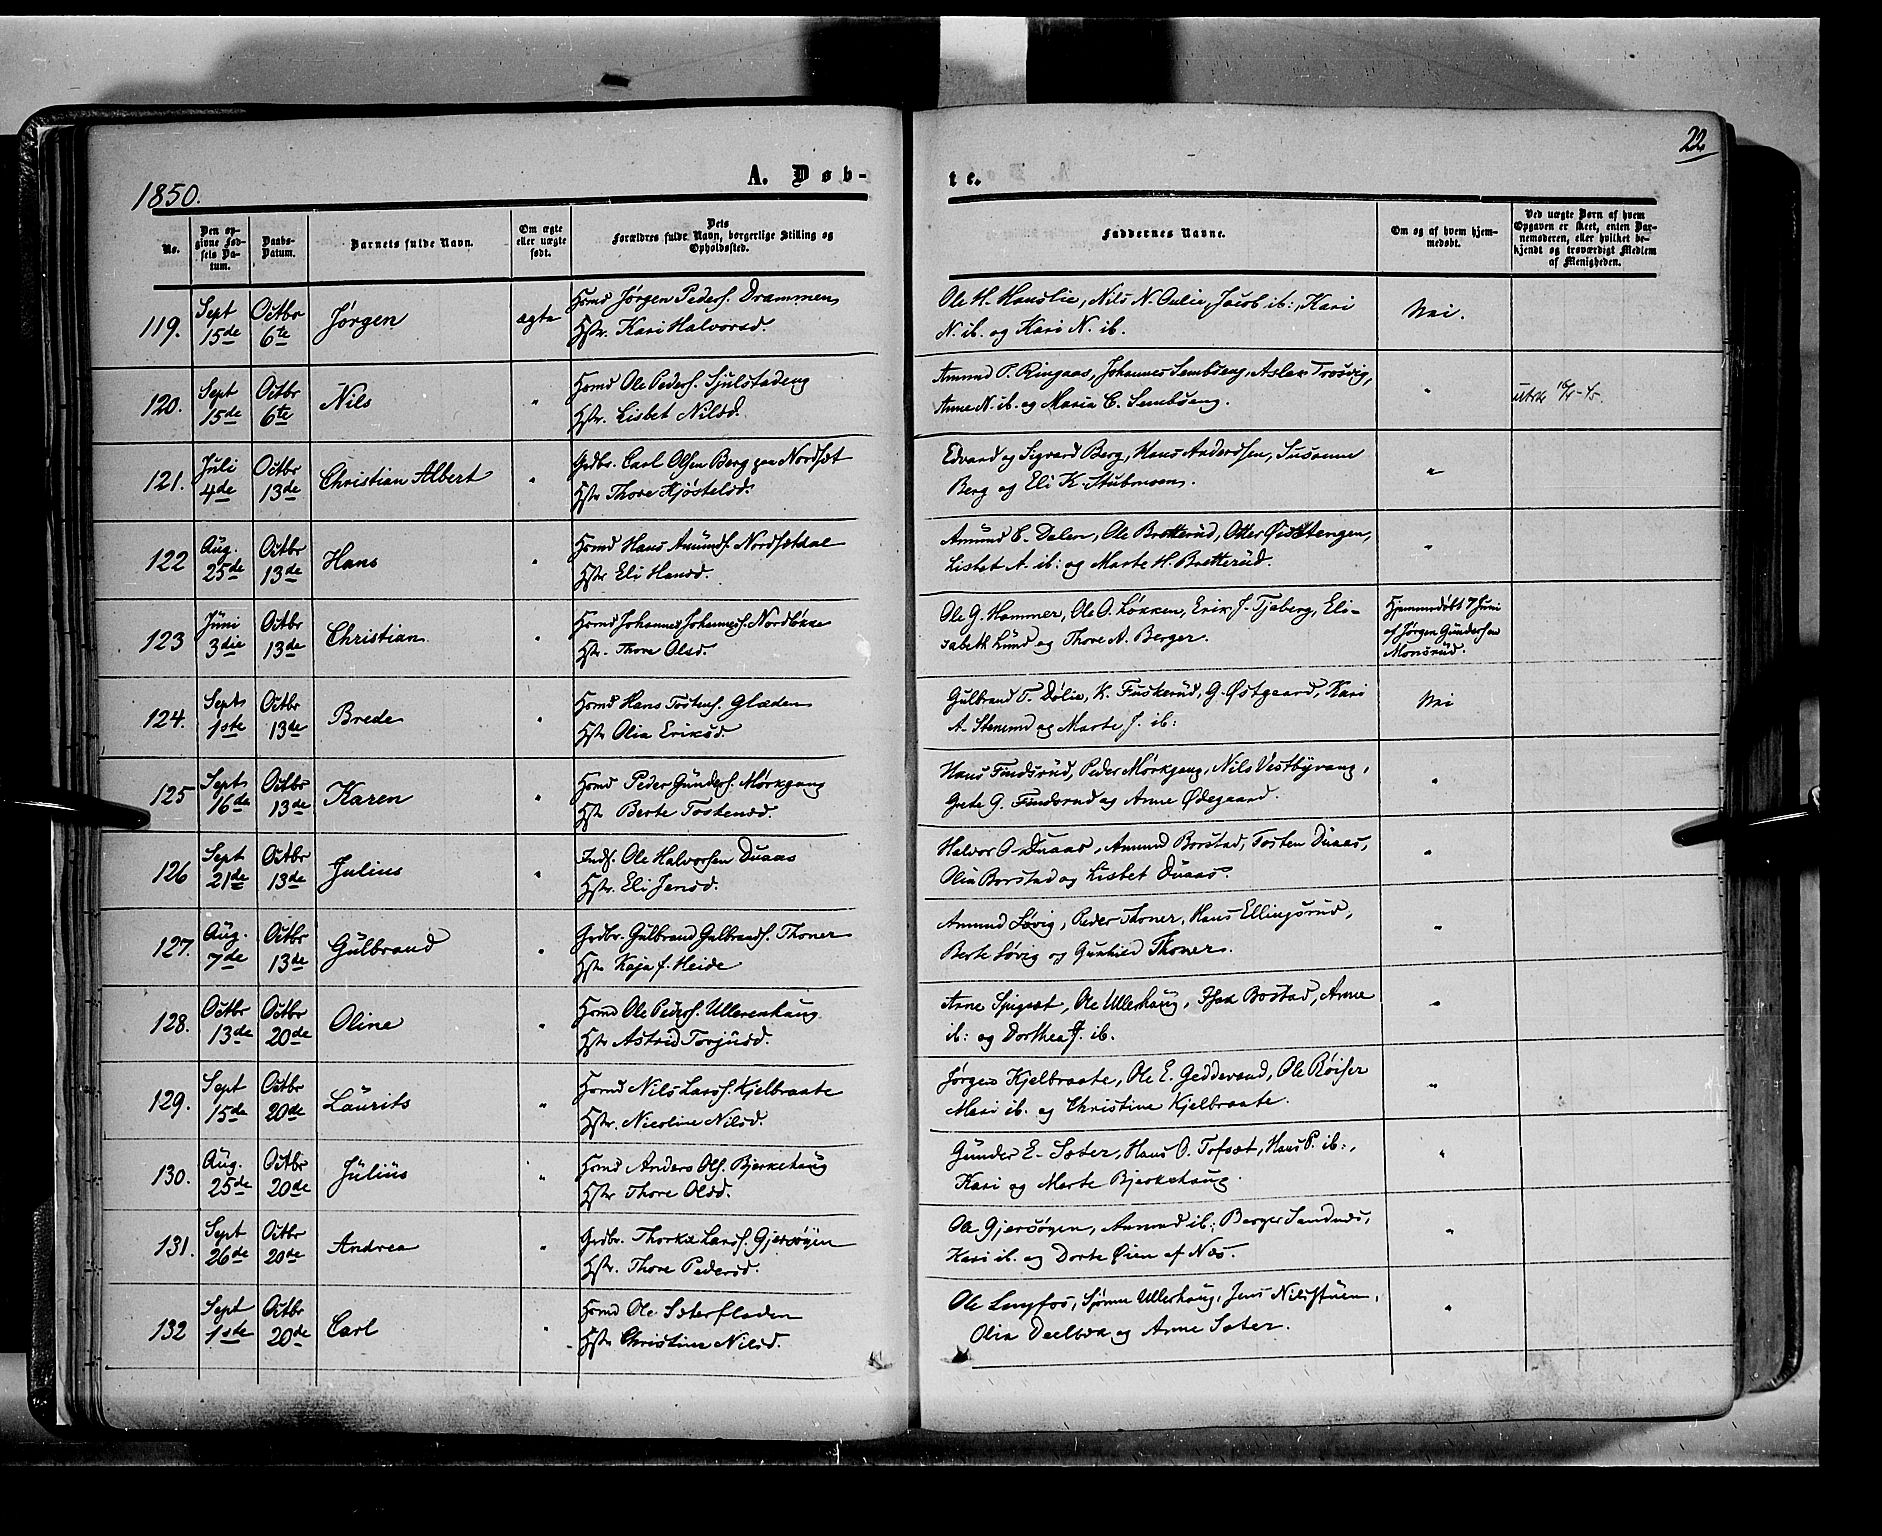 22
1850.
A. Døb-
te.
No.
Den op-
givne Fød-
sels Da-
tum.
Daabs-
Datum.
Barnets fulde Navn.
Om ægte
eller uægte
født.
Dets
Forældres fulde Navn, borgerlige Stilling og
Opholdssted.
Faddernes Navne.
Om og af hvem hjem-
medøbt.
Ved uægte Børn af hvem
Opgaven er skeet, enten Bar-
nemoderen, eller hvilket be-
kjendt og troværdigt Medlem
af Menigheden.
119. Sept 15de Octbr 6te Jørgen ægte
Hsmd Jørgen Peders. Drammen
Hstr. Kari Halvorsd.
Ole H. Hanslie, Nils N. Oulie, Jacob ib:, Kari
N. ib. og Kari N. ib.
Nei.
120. Sept 15de Octbr 6te Nils "
Hsmd Ole Peders. Sjulstadeng
Hstr. Lisbet Nilsd.
Amund P. Ringaas, Johannes Sembseng, Aslak Trosvig,
Anne N. ib. og Maria C. Sembseng.
"
121. Juli 4de Octbr 13de Christian Albert "
Grdbr. Carl Olsen Berg paa Nordsæt
Hstr Thore Kjøstelsd.
Edvard og Sigvard Berg, Hans Anderssen, Susanne
Berg og Eli K. Stubmoen.
"
122 Aug. 25de Octbr 13de Hans "
Hsmd Hans Amunds. Nordsætdal
Hstr Eli Hansd.
Amund E. Dalen, Ole Bratterud, Otter Øistengen,
Lisbet A. ib: og Marte H. Bratterud.
"
123 Juni 3die Octbr 13de Christian "
Hsmd Johannes Johannes. Nordløkke
Hstr. Thore Olsd.
Ole G. Hammer, Ole O. Løkken, Erik J. Tjaberg, Eli-
sabeth Lund og Thore N. Berger.
Hjemmedøbt 7 Juni
af Jørgen Gundersen
Monsrud.
124. Sept 1ste Octbr 13de Brede "
Hsmd Hans Tostens. Glæden
Hstr Olia Eriksd.
Gulbrand T. Dølie, K. Fuskerud, G. Østgaard, Kari
A. Stensrud og Marte J. ib:
Nei
125 Sept 16de Octbr 13de Karen "
Hsmd Peder Gunders. Mørkgang
Hstr Berte Tostensd.
Hans Findsrud, Peder Mørkgang, Nils Vestbyvang,
Grete G. Findsrud og Anne Ødegaard.
"
126 Sept 21de Octbr 13de Julius "
Inds. Ole Halvorsen Duaas
Hstr. Eli Jensd.
Halvor O. Duaas, Amund Borstad, Tosten Duaas,
Olia Borstad og Lisbet Duaas.
"
127. Aug. 7de Octbr 13de Gulbrand "
Grdbr. Gulbrand Gulbrands. Thoner
Hstr Kaja f. Heide
Amund Løvig, Peder Thoner, Hans Ellingsrud,
Berte Løvig og Gunhild Thoner.
"
128. Octbr 13de Octbr 20de Oline "
Hsmd Ole Peders. Ullerenhaug
Hstr Astrid Torjusd.
Arne Spigset, Ole Ullerhaug, Isak Bostad, Anne
ib: og Dorthea J. ib.
"
129. Sept 15de Octbr 20de Laurits "
Hsmd Nils Larss. Kjelbraate
Hstr. Nicoline Nilsd.
Jørgen Kjelbraate, Ole E. Geddevand, Ole Røiser
Mari ib. og Christine Kjelbraate.
"
130. Aug. 25de Octbr 20de Julius "
Hsmd Anders Ols. Bjerkehaug
Hstr Thore Olsd.
Gunder E. Sæter, Hans O. Tofsæt, Hans P. ib:,
Kari og Marte Bjerkehaug.
"
131. Sept 26de Octbr 20de Andrea "
Grdbr. Thorkil Larss. Gjersøyen
Hstr. Thore Pedersd.
Ole Gjersøyen, Amund ib: Berger Sandnæs,
Kari ib. og Dorte Øien af Næs.
"
132 Sept 1ste Octbr 20de Carl "
Hsmd Ole Sæterfladen
Hstr Christine Nilsd.
Ole Lengfos, Sømme Ullerhaug, Jens Nilsstuen,
Olia Deelbæk og Anne Sæter.
"